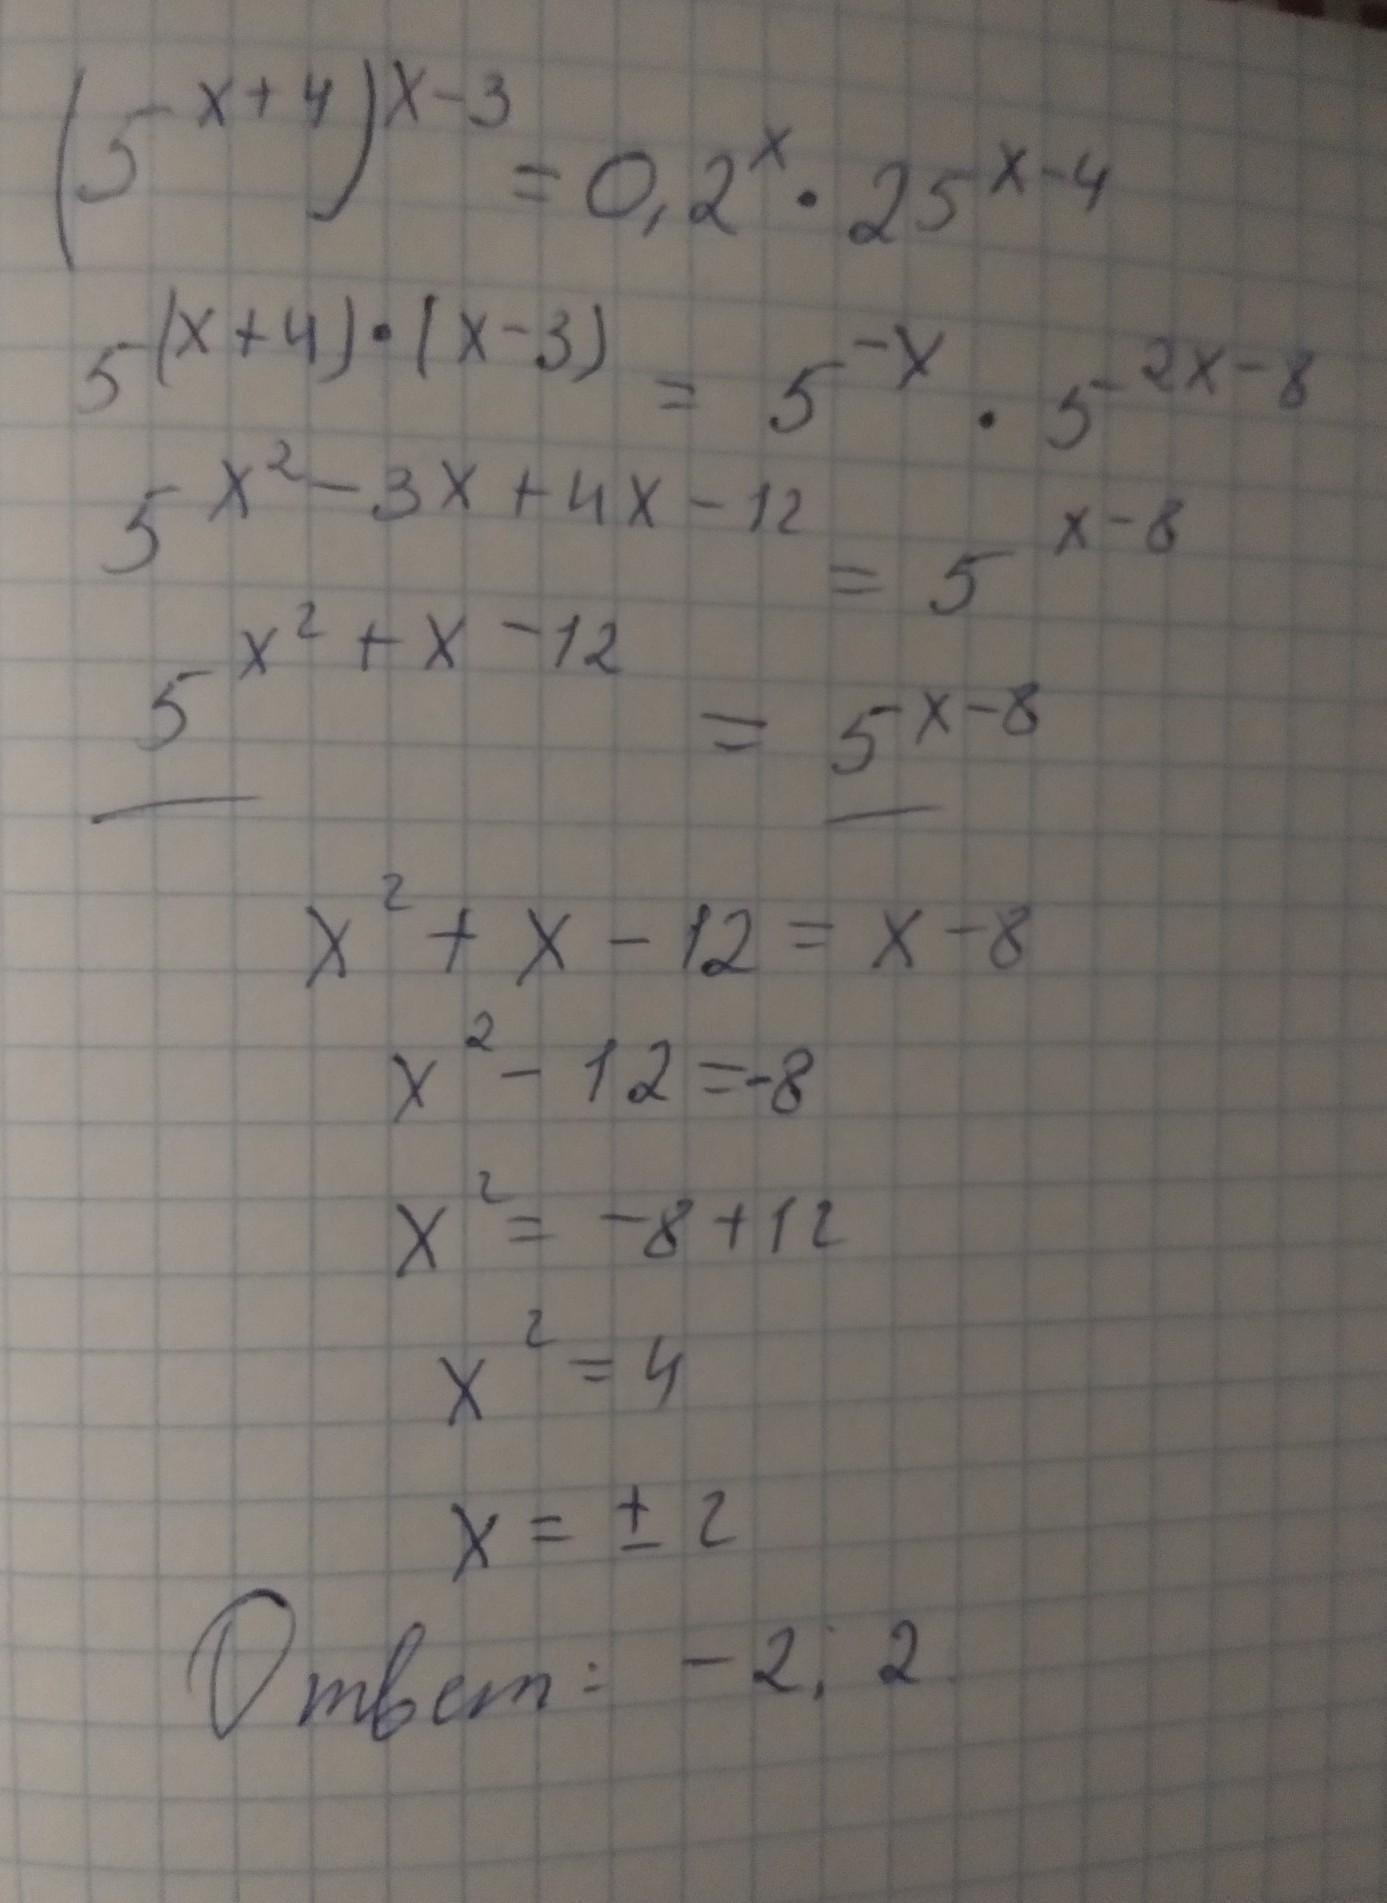 (5^{x+4})^{x-3} = 0,2^x · 25^{x-4}
5^{(x+4)·(x-3)} = 5^{-x} · 5^{2x-8}
5^{x²-3x+4x-12} = 5^{x-8}
5^{x²+x-12} = 5^{x-8}
x² + x - 12 = x - 8
x² - 12 = -8
x² = -8 + 12
x² = 4
x = ± 2
Ответ: -2; 2